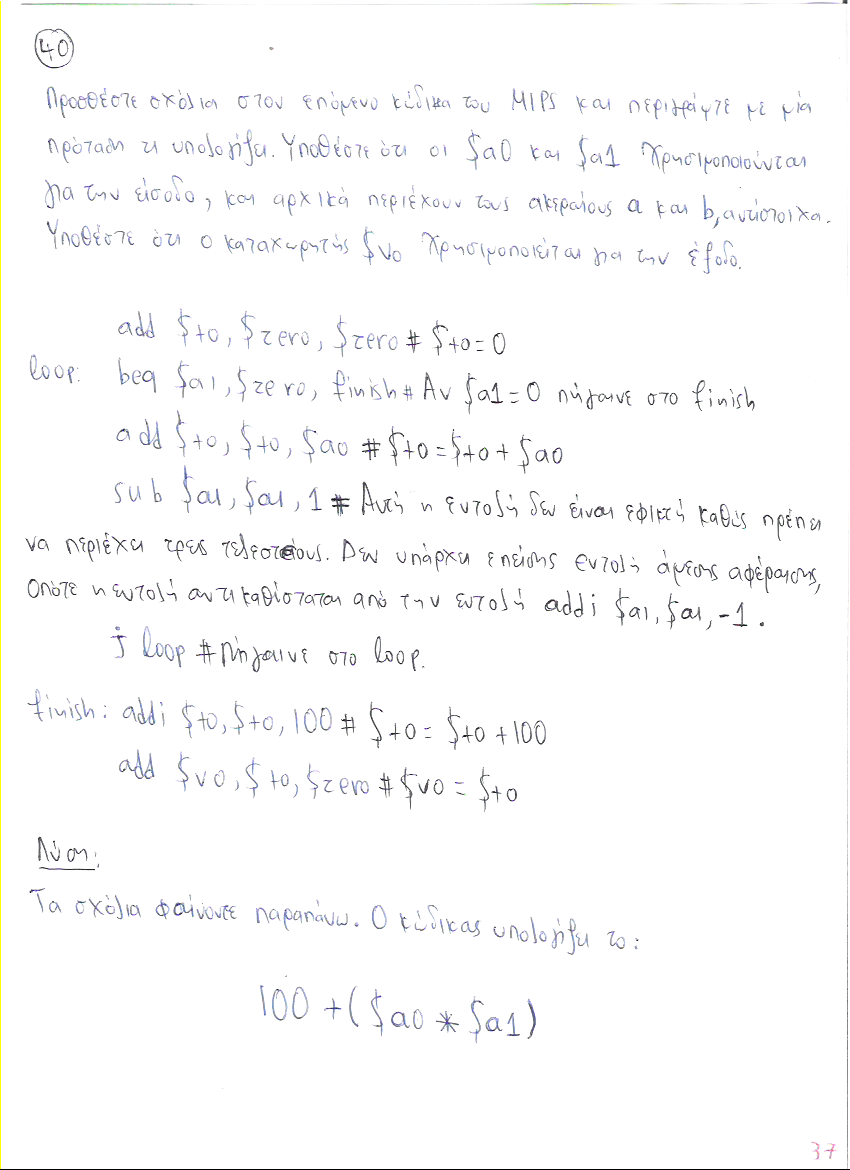 40
Προσθέστε σχόλια στον επόμενο κώδικα του MIPS και περιγράψτε με μία
πρόταση τι υπολογίζει. Υποθέστε ότι οι $a0 και $a1 χρησιμοποιούνται
για την είσοδο, και αρχικά περιέχουν τους ακεραίους a και b, αντίστοιχα.
Υποθέστε ότι ο καταχωρητής $v0 χρησιμοποιείται για την έξοδο.
add $t0, $zero, $zero # $t0=0
loop: beq $a1, $zero, finish # Αν $a1=0 πήγαινε στο finish
add $t0, $t0, $a0 # $t0=$t0+$a0
sub $a1, $a1, 1 # Αυτή η εντολή δεν είναι εφικτή καθώς πρέπει
να περιέχει τρεις τελεστέους. Δεν υπάρχει επείσης εντολή άμεσης αφέραισης,
οπότε η εντολή αντικαθίσταται από την εντολή addi $a1, $a1, -1.
j loop # Πήγαινε στο loop.
finish: addi $t0, $t0, 100 # $t0 = $t0 +100
add $v0, $t0, $zero # $v0 = $t0
Λύση:
Τα σχόλια φαίνοντε παραπάνω. Ο κώδικας υπολογίζει το:
100 +($a0 * $a1)
37